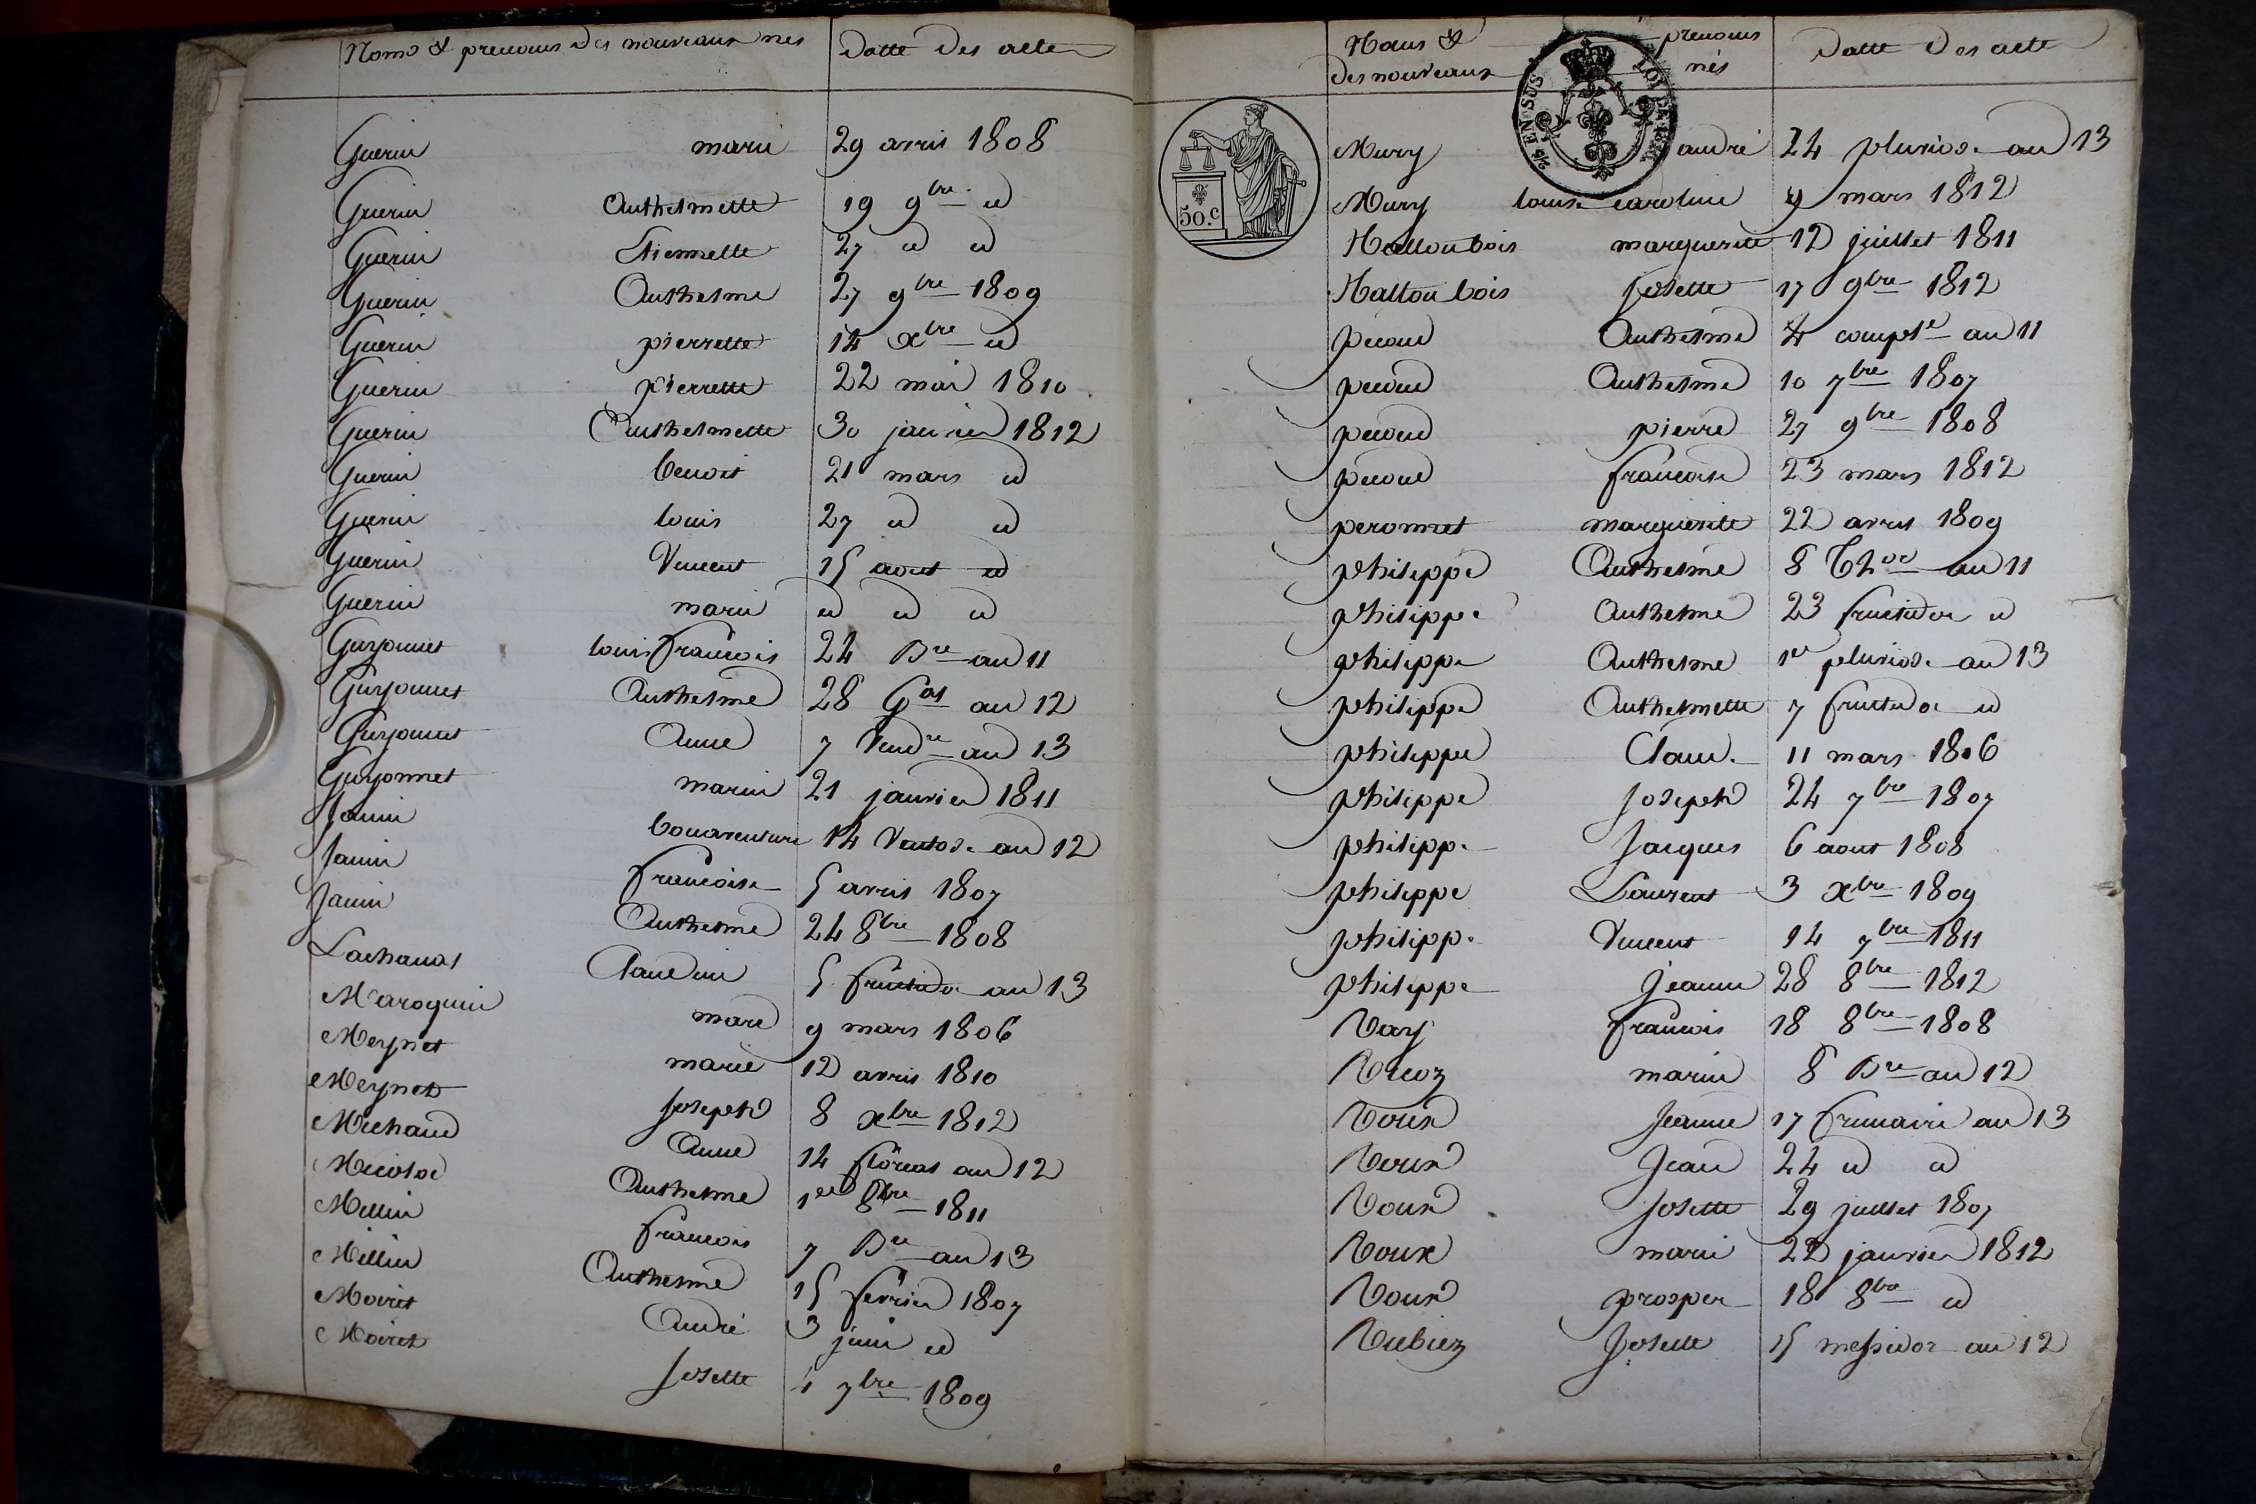 Noms & prenoms des nouveaux nés Datte des acte
Guerin marie 29 avril 1808
Guerin Anthelmette 19 9bre id
Guerin Etiennette 27 id id
Guerin Anthelme 27 9bre 1809
Guerin pierrette 14 xbre id
Guerin pierrette 22 mai 1810
Guerin Anthelmette 30 janvier 1812
Guerin benoit 21 mars id
Guerin louis 27 id id
Guerin Vincent 15 aout id
Guerin marie id id id
Guyonnet louis francois 24 Bre an 11
Guyonnet Anthelme 28 Gal an 12
Guyonnet Anne 7 Vendre an 13
Guyonnet marie 21 janvier 1811
Janin bonaventure 14 Ventose an 12
Janin francoise 5 avril 1807
Janin Anthelme 24 8bre 1808
Lachanal Claudine 5 fructidor an 13
Maroquin marie 9 mars 1806
Meynet marie 12 avril 1810
Meynet Joseph 8 xbre 1812
Michaud Anne 14 floreal an 12
Nicolod Anthelme 1er 8bre 1811
Millin francois 7 Bre an 13
Millin Anthelme 15 fevrier 1807
Moiret André 3 juin id
Moiret Josette 4 7bre 1809
Noms & prenoms Datte des acte
des nouveaux nés
EN SUS
LOI DE
50.c
Mury andré 24 pluviose an 13
Mury louise caroline 9 mars 1812
Nalloubois marguerite 12 juillet 1811
Nallou bois Josette 17 9bre 1812
pecoud Anthelme 4 complre an 11
pecoud Anthelme 10 7bre 1807
pecoud pierre 27 9bre 1808
pecoud francoise 23 mars 1812
peronnet marguerite 22 avril 1809
philippe Anthelme 8 Thor an 11
philippe Anthelme 23 fructidor id
philippe Anthelme 1er pluviose an 13
philippe Anthelmette 7 fructidor id
philippe Claude 11 mars 1806
philippe Joseph 24 7bre 1807
philippe Jacques 6 aout 1808
philippe Laurent 3 xbre 1809
philippe Vincent 14 7bre 1811
philippe Jeanne 28 8bre 1812
Ray francois 18 8bre 1808
Ricoz marie 8 Bre an 12
Roux Jeanne 17 frimaire an 13
Roux Jean 24 id id
Roux Josette 29 juillet 1807
Roux marie 22 janvier 1812
Roux prosper 18 8bre id
Rubiez Josette 15 messidor an 12